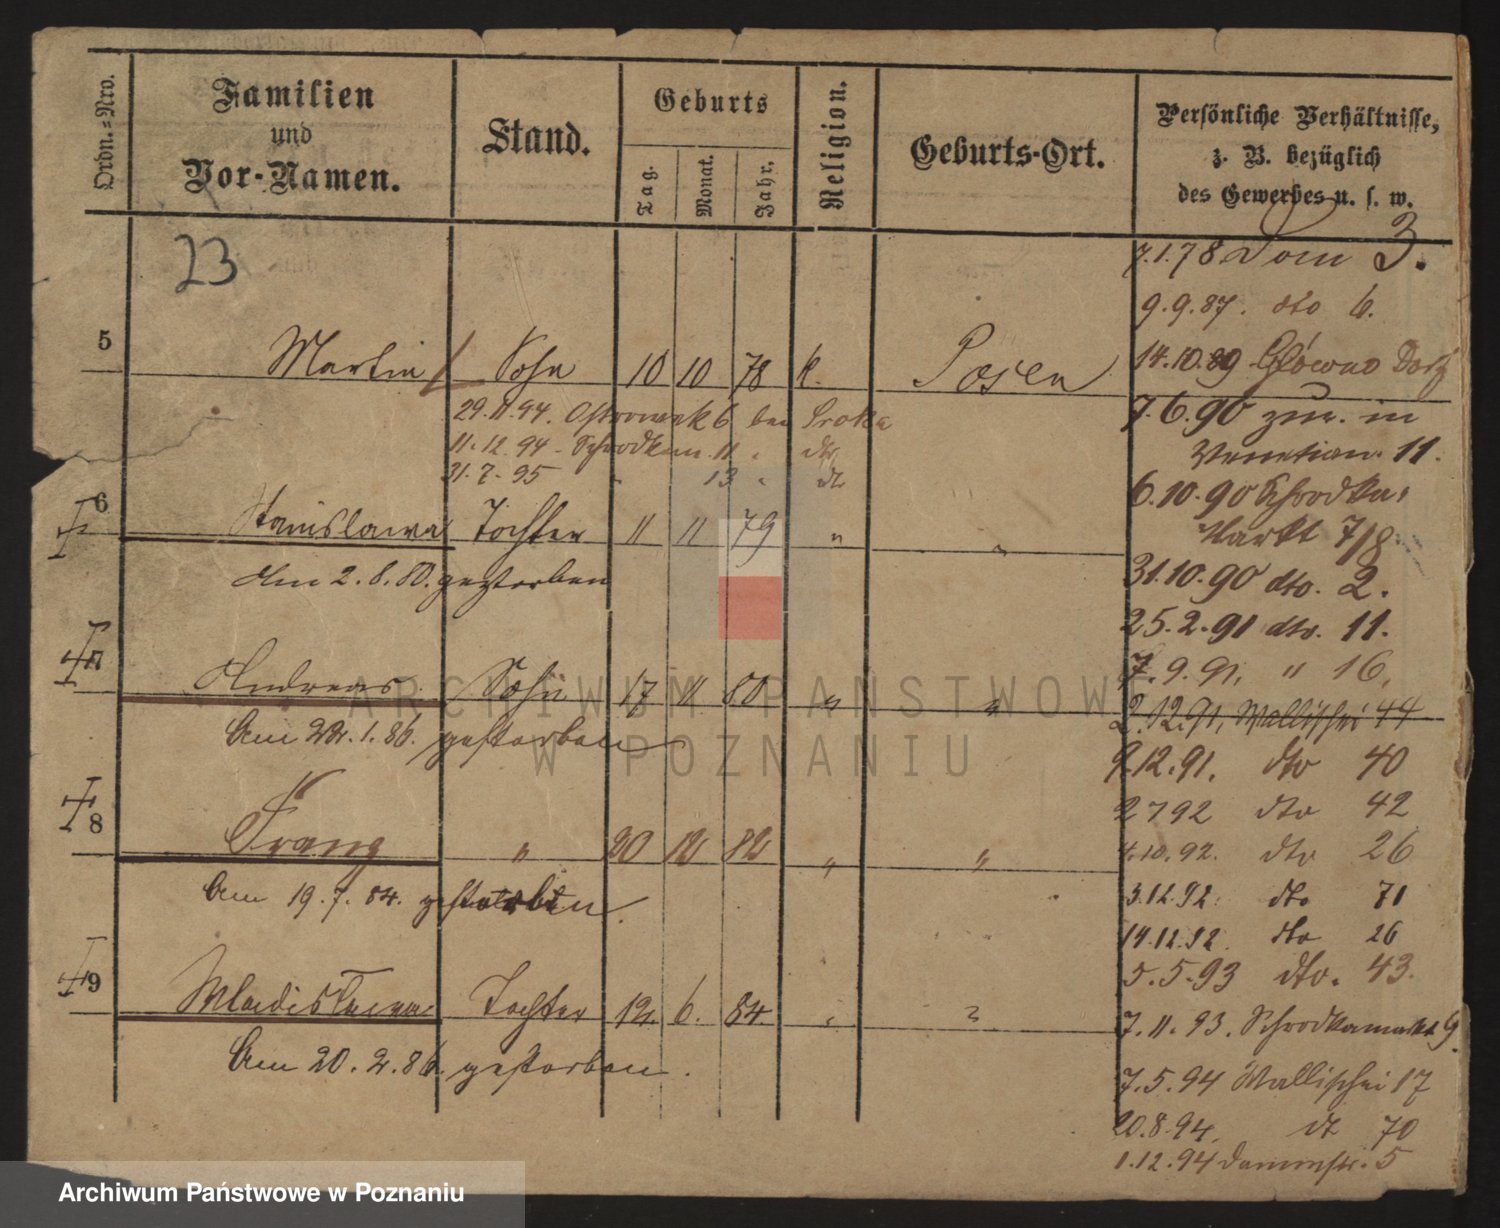 Ordn.-Nro.
Familien
und
Vor-Namen.
Stand.
Geburts
Tag.
Monat.
Jahr.
Religion.
Geburts-Ort.
Persönliche Verhältnisse,
z. B. bezüglich
des Gewerbes u. s. w.
23
7.1.78 Dom 3.
9.9.87. dto 6.
5 Martin Sohn 10 10 78 k. Posen
14.10.89 Główno Dorf
29.11.94. Ostrowek 6 bei Sroka
7.6.90 zur. in
11.12.94 - Schrodkam. 11 " dto
Venetian. 11.
31.7.95 " 13 " dt
6.10.90 Schrodka-
Markt 7/8
6 Stanislawa Tochter 11 11 79 " "
Am 2.8.80. gestorben
31.10.90 dto. 2.
25.2.91 dto. 11.
7.9.91. " 16.
7 Andreas Sohn 17 11 80 " "
2.12.91, Wallischei 44
Am 22.1.86. gestorben
9.12.91. dto 40
2 7 92 dto 42
8 Franz " 20 12 82 " "
4.10.92. dto 26
Am 19.7.84. gestorben.
3.12.92. dto 71
14.12.92. dto 26
5.5.93 dto. 43.
9 Wladislawa Tochter 12. 6. 84. " "
7.11.93. Schrodkamarkt 9.
Am 20.2.86. gestorben.
7.5.94 Wallischei 17
20.8.94. dt 70
1.12.94 Dammstr. 5
ARCHIWUM PAŃSTWOWE
W POZNANIU
Archiwum Państwowe w Poznaniu